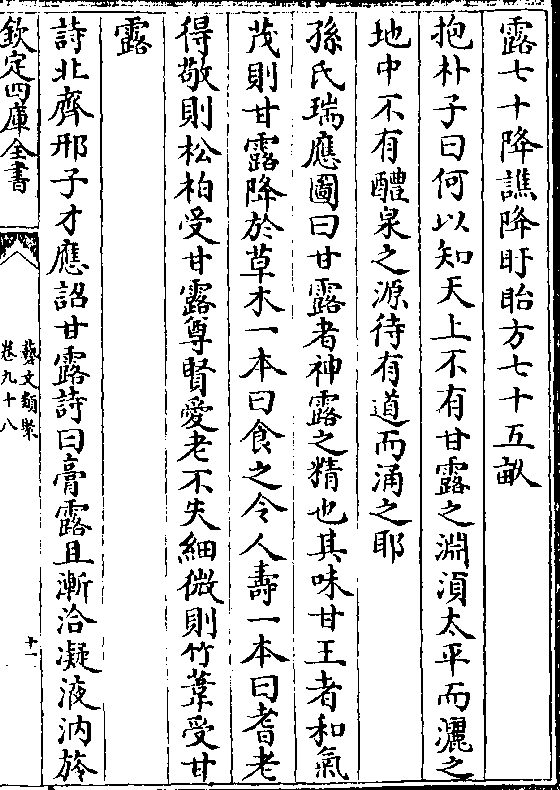 露七十降譙降盱眙方七十五畝
抱朴子曰何以知天上不有甘露之淵湏太平而灑之
地中不有醴泉之源待有道而涌之耶
孫氏瑞應圖曰甘露者神露之精也其味甘王者和氣
茂則甘露降於草木一本曰食之令人壽一本曰耆老
得敬則松柏受甘露尊賢愛老不失細微則竹葦受甘
露
詩北齊邢子才應詔甘露詩曰膏露且漸洽凝液汭旍
欽定四庫全書
藝文類聚
卷九十八
十一